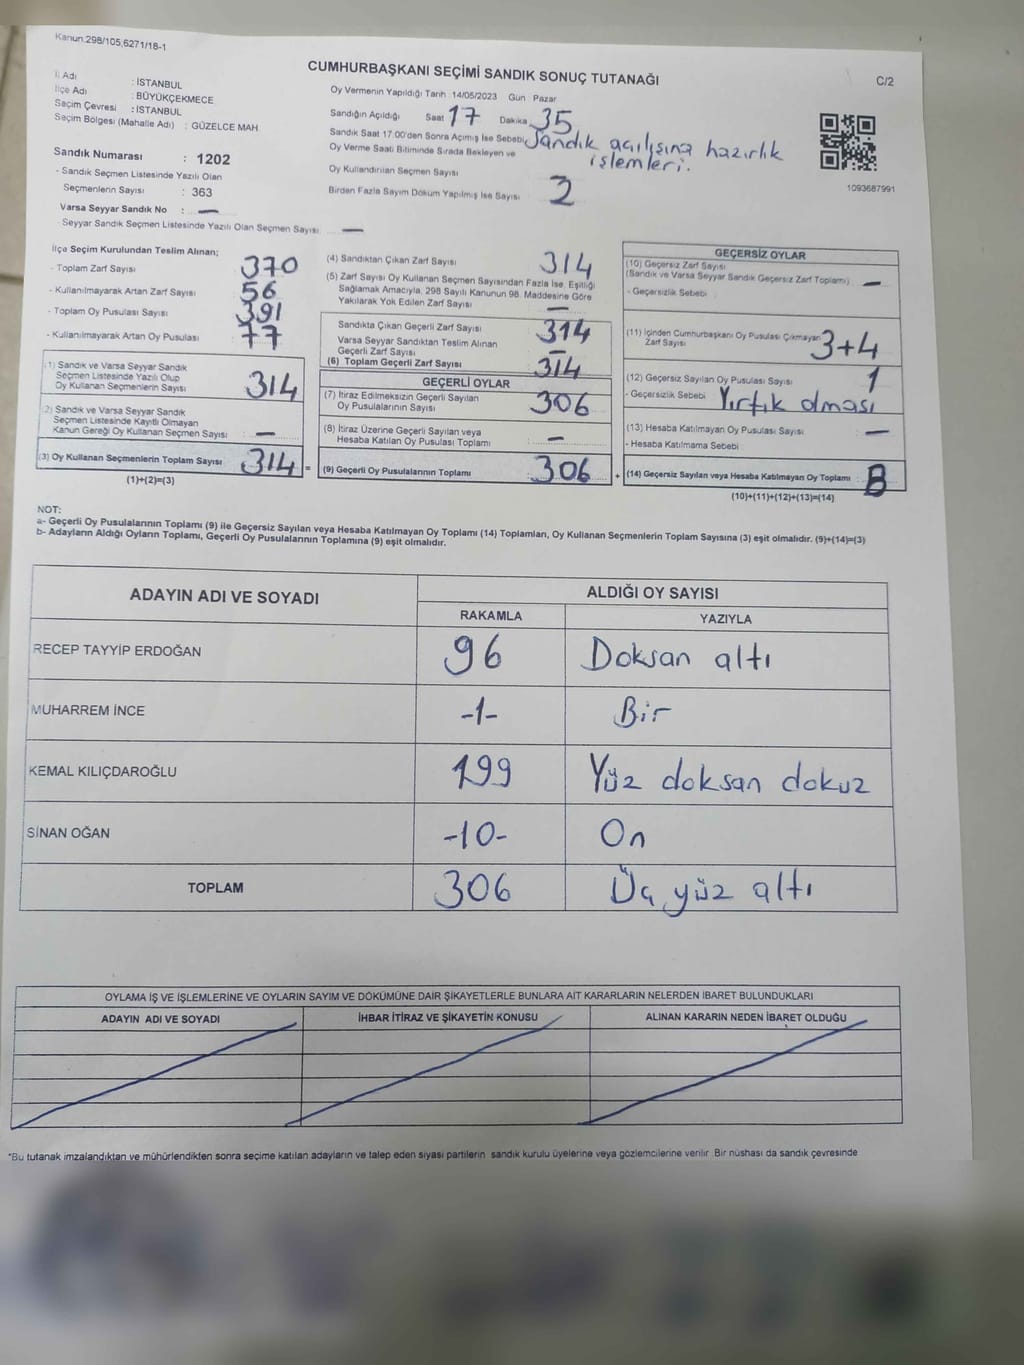 Kanun.298/105,6271/18-1
CUMHURBAŞKANI SEÇİMİ SANDIK SONUÇ TUTANAĞI
C/2
İl Adı : İSTANBUL
İlçe Adı : BÜYÜKÇEKMECE
Seçim Çevresi : İSTANBUL
Seçim Bölgesi (Mahalle Adı) : GÜZELCE MAH
Sandık Numarası : 1202
- Sandık Seçmen Listesinde Yazılı Olan
Seçmenlerin Sayısı : 363
Varsa Seyyar Sandık No : —
- Seyyar Sandık Seçmen Listesinde Yazılı Olan Seçmen Sayısı : —
Oy Vermenin Yapıldığı Tarih 14/05/2023 Gün Pazar
Sandığın Açıldığı Saat 17 Dakika 35
Sandık Saat 17.00'den Sonra Açımış İse Sebebi Sandık açılışına hazırlık
işlemleri.
Oy Verme Saati Bitiminde Sırada Bekleyen ve
Oy Kullandırılan Seçmen Sayısı
Birden Fazla Sayım Döküm Yapılmış İse Sayısı : 2
1093687991
İlçe Seçim Kurulundan Teslim Alınan;
- Toplam Zarf Sayısı : 370
- Kullanılmayarak Artan Zarf Sayısı : 56
- Toplam Oy Pusulası Sayısı : 391
- Kullanılmayarak Artan Oy Pusulası : 77
(1) Sandık ve Varsa Seyyar Sandık
Seçmen Listesinde Yazılı Olup
Oy Kullanan Seçmenlerin Sayısı : 314
(2) Sandık ve Varsa Seyyar Sandık
Seçmen Listesinde Kayıtlı Olmayan
Kanun Gereği Oy Kullanan Seçmen Sayısı : —
(3) Oy Kullanan Seçmenlerin Toplam Sayısı : 314 =
(1)+(2)=(3)
(4) Sandıktan Çıkan Zarf Sayısı : 314
(5) Zarf Sayısı Oy Kullanan Seçmen Sayısından Fazla İse, Eşitliği
Sağlamak Amacıyla, 298 Sayılı Kanunun 98. Maddesine Göre
Yakılarak Yok Edilen Zarf Sayısı : —
Sandıkta Çıkan Geçerli Zarf Sayısı : 314
Varsa Seyyar Sandıktan Teslim Alınan
Geçerli Zarf Sayısı : —
(6) Toplam Geçerli Zarf Sayısı : 314
GEÇERLİ OYLAR
(7) İtiraz Edilmeksizin Geçerli Sayılan
Oy Pusulalarının Sayısı : 306
(8) İtiraz Üzerine Geçerli Sayılan veya
Hesaba Katılan Oy Pusulası Toplamı : —
(9) Geçerli Oy Pusulalarının Toplamı : 306 +
GEÇERSİZ OYLAR
(10) Geçersiz Zarf Sayısı
(Sandık ve Varsa Seyyar Sandık Geçersiz Zarf Toplamı) : —
- Geçersizlik Sebebi
(11) İçinden Cumhurbaşkanı Oy Pusulası Çıkmayan
Zarf Sayısı 3+4
(12) Geçersiz Sayılan Oy Pusulası Sayısı : 1
- Geçersizlik Sebebi Yırtık olması
(13) Hesaba Katılmayan Oy Pusulası Sayısı : —
- Hesaba Katılmama Sebebi
(14) Geçersiz Sayılan veya Hesaba Katılmayan Oy Toplamı : 8
(10)+(11)+(12)+(13)=(14)
NOT:
a- Geçerli Oy Pusulalarının Toplamı (9) ile Geçersiz Sayılan veya Hesaba Katılmayan Oy Toplamı (14) Toplamları, Oy Kullanan Seçmenlerin Toplam Sayısına (3) eşit olmalıdır. (9)+(14)=(3)
b- Adayların Aldığı Oyların Toplamı, Geçerli Oy Pusulalarının Toplamına (9) eşit olmalıdır.
ADAYIN ADI VE SOYADI ALDIĞI OY SAYISI
RAKAMLA YAZIYLA
RECEP TAYYİP ERDOĞAN 96 Doksan altı
MUHARREM İNCE -1- Bir
KEMAL KILIÇDAROĞLU 199 Yüz doksan dokuz
SİNAN OĞAN -10- On
TOPLAM 306 Üç yüz altı
OYLAMA İŞ VE İŞLEMLERİNE VE OYLARIN SAYIM VE DÖKÜMÜNE DAİR ŞİKAYETLERLE BUNLARA AİT KARARLARIN NELERDEN İBARET BULUNDUKLARI
ADAYIN ADI VE SOYADI İHBAR İTİRAZ VE ŞİKAYETİN KONUSU ALINAN KARARIN NEDEN İBARET OLDUĞU
*Bu tutanak imzalandıktan ve mühürlendikten sonra seçime katılan adayların ve talep eden siyasi partilerin sandık kurulu üyelerine veya gözlemcilerine verilir Bir nüshası da sandık çevresinde